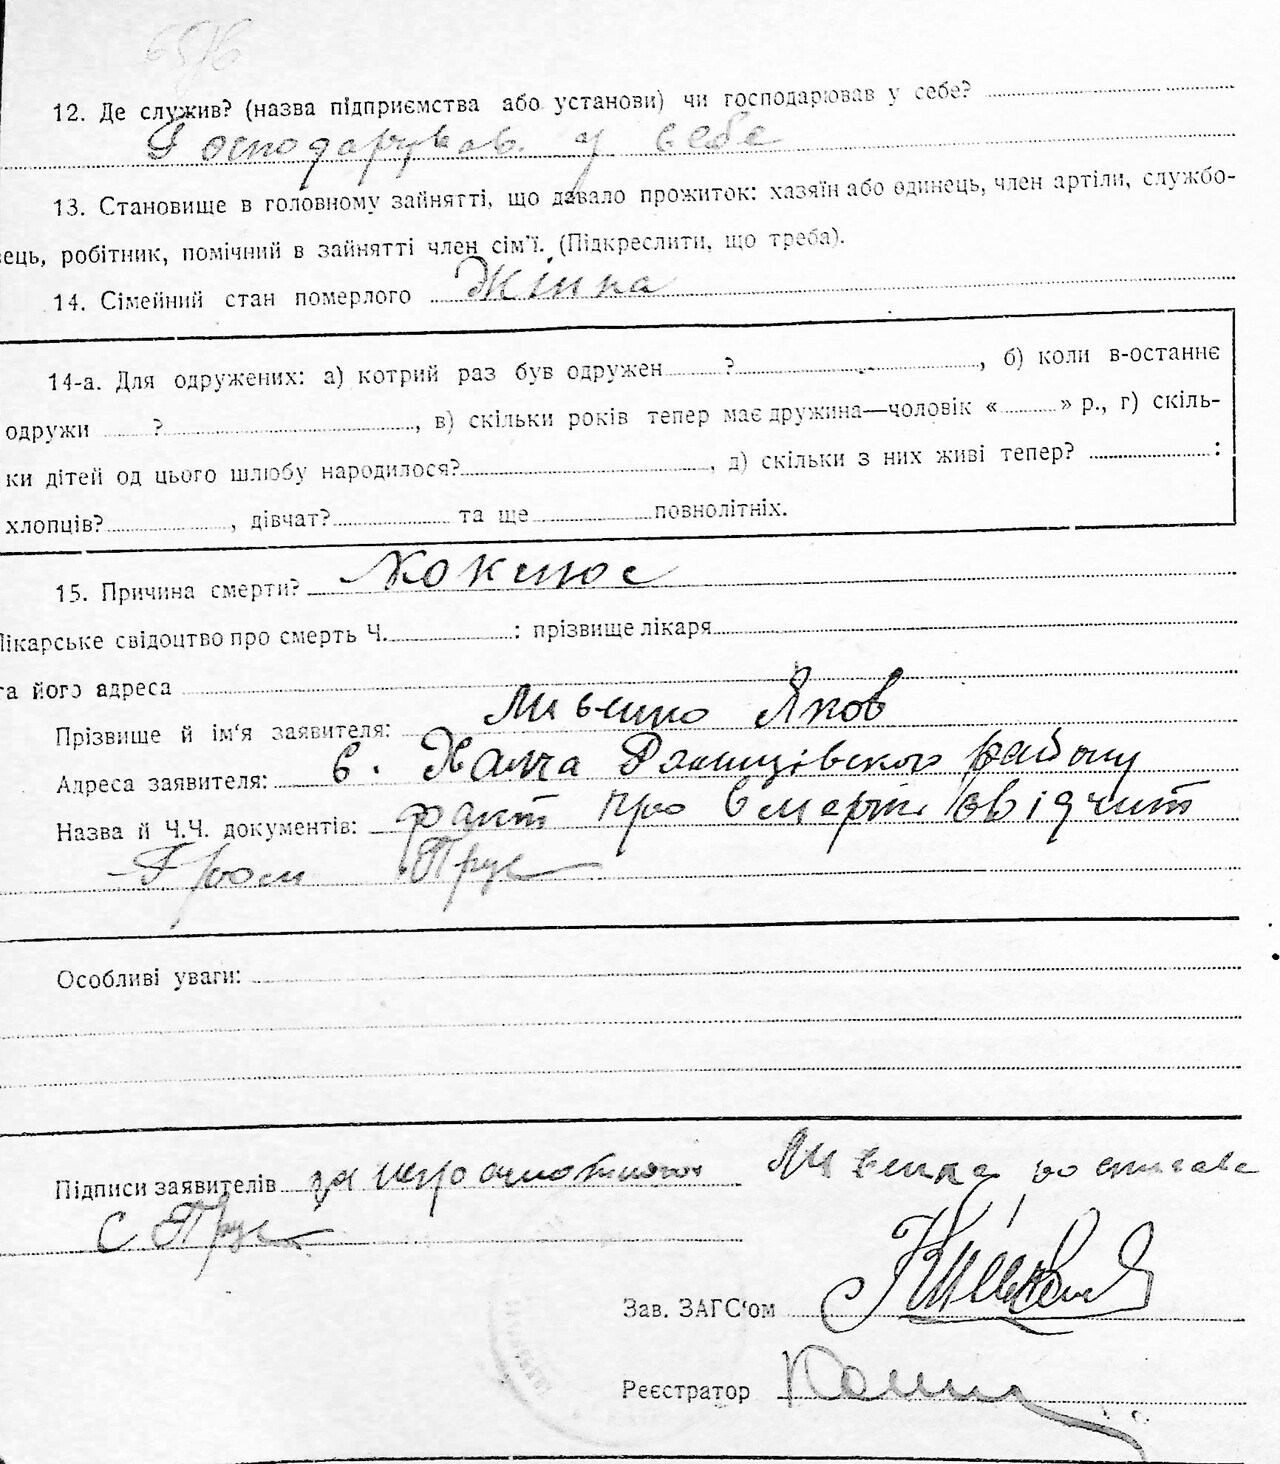 12. Де служив? (назва підприємства або установи) чи господарював у себе?
Господарував у себе
13. Становище в головному зайнятті, що давало прожиток: хазяїн або одинець, член артіли, службо-
вець, робітник, помічний в зайнятті член сім'ї. (Підкреслити, що треба).
14. Сімейний стан померлого Жінка
14-а. Для одружених: а) котрий раз був одружен ? , б) коли в-останнє
одружи ? , в) скільки років тепер має дружина—чоловік « » р., г) скіль-
ки дітей од цього шлюбу народилося? , д) скільки з них живі тепер? :
хлопців? , дівчат? та ще повнолітніх.
15. Причина смерти? Коклюс
Лікарське свідоцтво про смерть Ч. : прізвище лікаря
та його адреса
Прізвище й ім'я заявителя: Яков
Адреса заявителя: с. району
Назва й Ч.Ч. документів: факт про смерть свідчит
Прус
Особливі уваги:
Підписи заявителів за неграмотного
Прус
Зав. ЗАГС'ом
Реєстратор